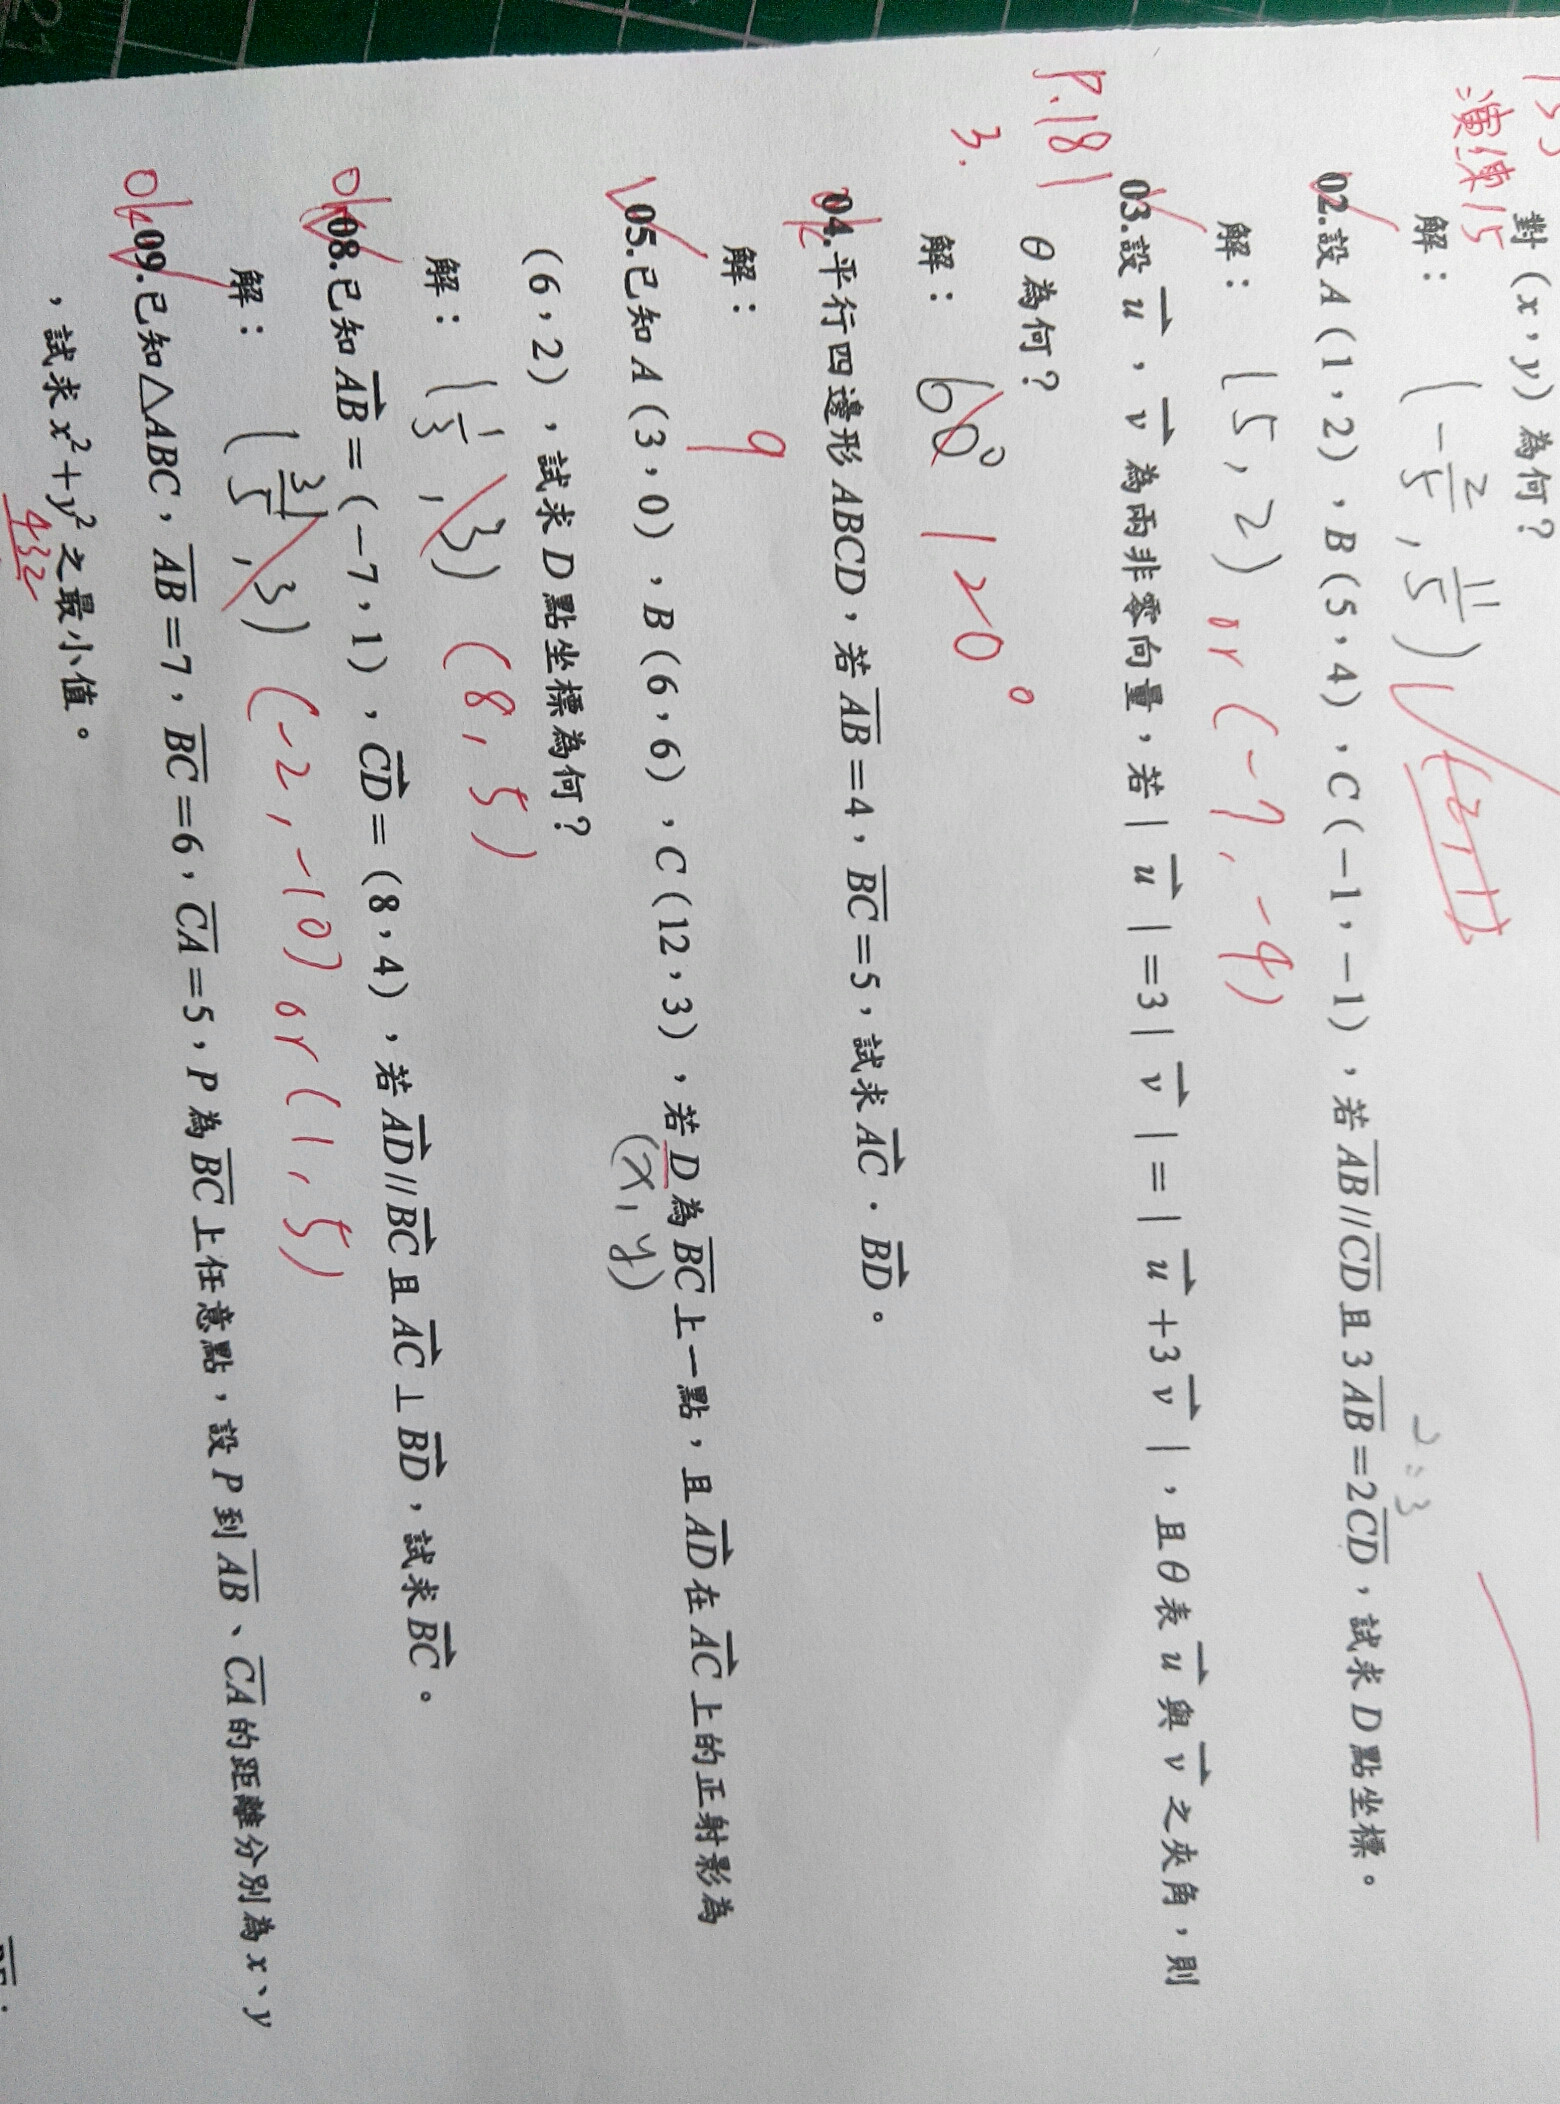 演練15
對(x,y)為何?
解: (-2/5, 11/5)
02.設A(1,2),B(5,4),C(-1,-1),若AB//CD且3AB=2CD,試求D點坐標。
2:3
解: (5,2) or (-7,-4)
P.181
03.設u,v為兩非零向量,若|u|=3|v|=|u+3v|,且θ表u與v之夾角,則
θ為何?
3.
解: 60° 120°
04.平行四邊形ABCD,若AB=4,BC=5,試求AC·BD。
ok
解: 9
05.已知A(3,0)、B(6,6)、C(12,3),若D為BC上一點,且AD在AC上的正射影為
(x,y)
(6,2),試求D點坐標為何?
解: (1/3, 3) (8,5)
ok
08.已知AB=(-7,1),CD=(8,4),若AD//BC且AC⊥BD,試求BC。
解: (3/5, 3) (-2,-10) or (1,5)
ok
09.已知△ABC,AB=7,BC=6,CA=5,P為BC上任意點,設P到AB、CA的距離分別為x、y
,試求x²+y²之最小值。
432